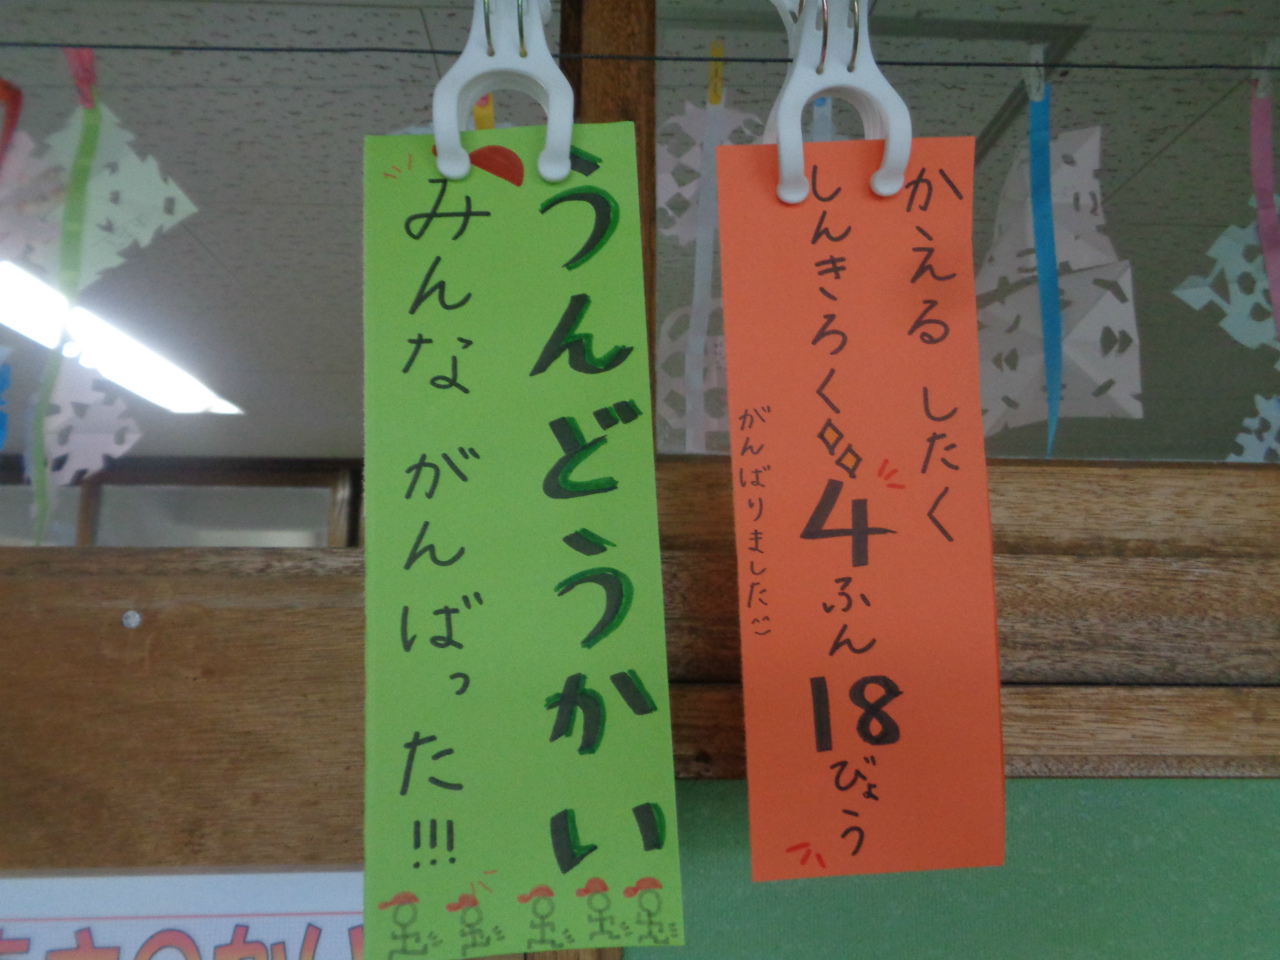 うんどうかい
みんな がんばった!!!
かえる したく
しんきろく
4ふん18びょう
がんばりました